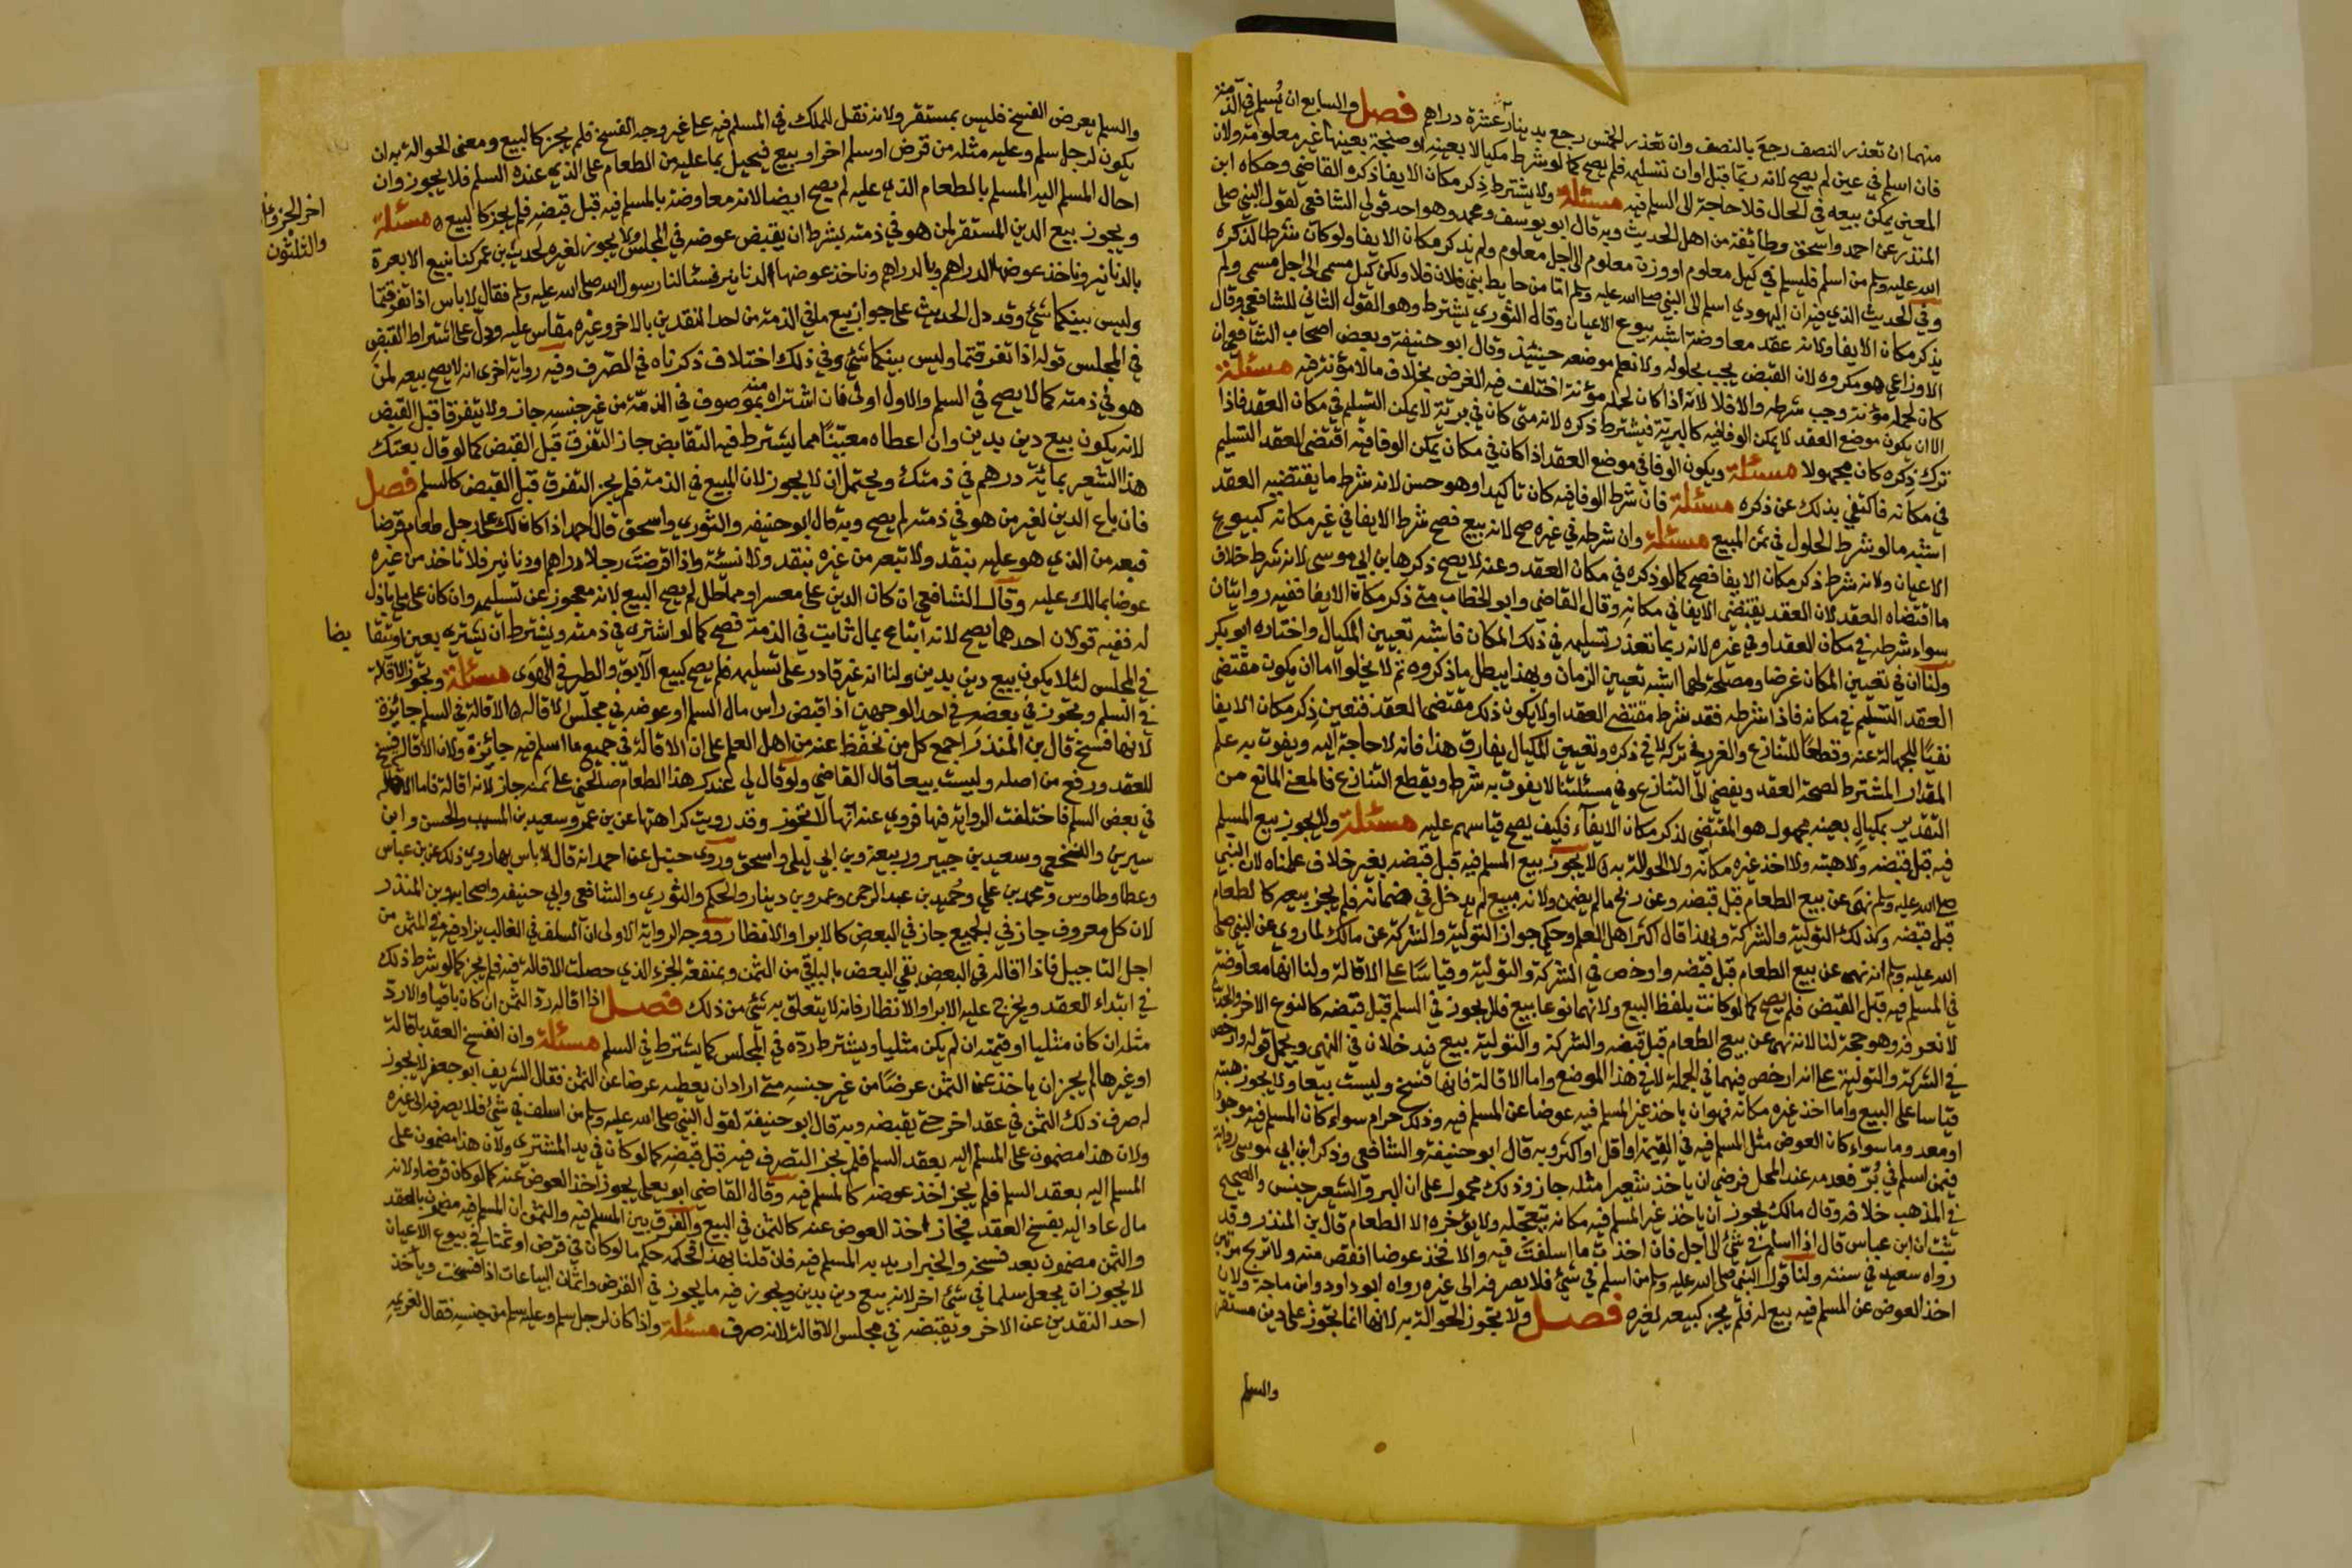 منهما ان تعذر النصف رجع بالنصف وان تعذر الخمس رجع بدينار عشرة دراهم فصل والسابع ان يسلم في الذمة
فان اسلم في عين لم يصح لانه ربما تلف قبل اوان تسليمه فلم يصح كما لو شرط مكيالا بعينه او صنجة بعينها غير معلومة ولان
المعين يمكن بيعه في الحال فلا حاجة الى السلم فيه مسئلة ولا يشترط ذكر مكان الايفا ذكره القاضي وحكاه ابن
المنذر عن احمد واسحق وطائفة من اهل الحديث وبه قال ابو يوسف ومحمد وهو احد قولي الشافعي لقول النبي صلى
الله عليه وسلم من اسلم فليسلم في كيل معلوم او وزن معلوم الى اجل معلوم ولم يذكر مكان الايفا ولو كان شرطا لذكره
وفي الحديث الذي فيه ان اليهودي اسلم الى النبي صلى الله عليه وسلم اما من حايط بني فلان فلا ولكن كيل مسمى الى اجل مسمى ولم
يذكر مكان الايفا ولانه عقد معاوضة اشبه بيوع الاعيان وقال الثوري يشترط وهو القول الثاني للشافعي وقال
الاوزاعي هو مكروه لان القبض يجب بحلوله ولا نعلم موضعه حينئذ وقال ابو حنيفة وبعض اصحاب الشافعي ان
كان لحمله مؤنة وجب شرطه والا فلا لانه اذا كان لحمله مؤنة اختلف فيه الغرض بخلاف ما لا مؤنة فيه مسئلة
الا ان يكون موضع العقد لا يمكن الوفا فيه كالبرية فيشترط ذكره لانه متى كان في برية لا يمكن التسليم في مكان العقد فاذا
ترك ذكره كان مجهولا مسئلة ويكون الوفا في موضع العقد اذا كان في مكان يمكن الوفا فيه اقتضى العقد التسليم
في مكانه فاكتفي بذلك عن ذكره مسئلة فان شرط الوفا فيه كان تاكيدا وهو حسن لانه شرط ما يقتضيه العقد
اشبه ما لو شرط الحلول في ثمن المبيع مسئلة وان شرطه في غيره صح لانه بيع فصح شرط الايفا في غير مكانه كبيوع
الاعيان ولانه شرط ذكر مكان الايفا فصح كما لو ذكره في مكان العقد وعنه لا يصح ذكرها بن ابي موسى لانه شرط خلاف
ما اقتضاه العقد لان العقد يقتضي الايفا في مكانه وقال القاضي وابو الخطاب متى ذكر مكان الايفا ففيه روايتان
سواء شرطه في مكان العقد او في غيره لانه ربما تعذر تسليمه في ذلك المكان فاشبه تعيين المكيال واختاره ابو بكر
ولنا ان في تعيين المكان غرضا ومصلحة لهما اشبه تعيين الزمان وبهذا يبطل ما ذكروه ثم لا يخلوا اما ان يكون مقتضى
العقد التسليم في مكانه فاذا شرطه فقد شرط مقتضى العقد او لا يكون ذلك مقتضى العقد فتعين ذكر مكان الايفا
نفيا للجهالة عنه وقطعا للتنازع والغرر في تركه لا في ذكره وتعيين المكيال يفارق هذا فانه لا حاجة اليه ويفوت به علم
المقدار المشترط لصحة العقد ويفضي الى التنازع وفي مسئلتنا لا يفوت به شرط ويقطع التنازع فالمعنى المانع من
التقدير بمكيال بعينه مجهول هو المقتضي لذكر مكان الايفاء فكيف يصح قياسهم عليه مسئلة ولا يجوز بيع المسلم
فيه قبل قبضه ولا هبته ولا اخذ غيره مكانه ولا الحوالة به لا يجوز بيع المسلم فيه قبل قبضه بغير خلاف علمناه لان النبي
صلى الله عليه وسلم نهى عن بيع الطعام قبل قبضه وعن ربح ما لم يضمن ولانه مبيع لم يدخل في ضمانه فلم يجز بيعه كالطعام
قبل قبضه وكذلك التولية والشركة وبهذا قال اكثر اهل العلم وحكي جواز التولية والشركة عن مالك لما روي عن النبي صلى
الله عليه وسلم انه نهى عن بيع الطعام قبل قبضه وارخص في الشركة والتولية وقياسا على الاقالة ولنا انها معاوضة
في المسلم فيه قبل القبض فلم يصح كما لو كانت بلفظ البيع ولانهما نوعا بيع فلم يجوز في السلم قبل قبضه كالنوع الاخر والحديث
لا نعرفه وهو حجة لنا لانه نهى عن بيع الطعام قبل قبضه والشركة والتولية بيع فيدخلان في النهي ويحمل قوله وارخص
في الشركة والتولية على انه ارخص فيهما في الجملة لا في هذا الموضع واما الاقالة فانها فسخ وليست بيعا ولا يجوز هبته
قياسا على البيع واما اخذ غيره مكانه فهو ان ياخذ غير المسلم فيه عوضا عن المسلم فيه وذلك حرام سواء كان المسلم فيه موجودا
او معدوما سواء كان العوض مثل المسلم فيه في القيمة او اقل او اكثر وبه قال ابو حنيفة والشافعي وذكر ابن ابي موسى رواية
فيمن اسلم في بر فعدمه عند المحل فرضي ان ياخذ شعيرا مثله جاز وذلك محمول على ان البر والشعير جنس والصحيح
في المذهب خلافه وقال مالك يجوز ان ياخذ غير المسلم فيه مكانه يتعجله ولا يؤخره الا الطعام قال بن المنذر وقد
ثبت ان ابن عباس قال اذا اسلم في شئ الى اجل فان اخذت ما اسلفت فيه والا فخذ عوضا انقص منه ولا تربح مرتين
رواه سعيد في سننه ولنا قول النبي صلى الله عليه وسلم من اسلم في شئ فلا يصرفه الى غيره رواه ابو داود وابن ماجة ولان
اخذ العوض عن المسلم فيه بيع له فلم يجز كبيعه لغيره فصل ولا تجوز الحوالة به لانها انما تجوز على دين مستقر
والسلم
والسلم يعرض الفسخ فليس بمستقر ولانه نقل للملك في المسلم فيه على غير وجه الفسخ فلم يجز كالبيع ومعنى الحوالة به ان
يكون لرجل سلم وعليه مثله من قرض او سلم اخر او بيع فيحيل بما عليه من الطعام على الذي عنده السلم فلا يجوز وان
احال المسلم اليه المسلم بالطعام الذي عليه لم يصح ايضا لانه معاوضة بالمسلم فيه قبل قبضه فلم يجز كالبيع مسئلة
ويجوز بيع الدين المستقر لمن هو في ذمته بشرط ان يقبض عوضه في المجلس ولا يجوز لغيره لحديث بن عمر كنا نبيع الابعرة
بالدنانير وناخذ عوضها الدراهم وبالدراهم وناخذ عوضها الدنانير فسئالنا رسول الله صلى الله عليه وسلم فقال لا باس اذا تفرقتما
وليس بينكما شئ وقد دل الحديث على جواز بيع ما في الذمة من احد النقدين بالاخر وغيره مقاس عليه ودل على اشتراط القبض
في المجلس قوله اذا تفرقتما وليس بينكما شئ وفي ذلك اختلاف ذكرناه في الصرف وفيه رواية اخرى انه لا يصح بيعه لمن
هو في ذمته كما لا يصح في السلم والاول اولى فان اشتراه منه بموصوف في الذمة من غير جنسه جاز ولا يتفرقا قبل القبض
لانه يكون بيع دين بدين وان اعطاه معينا مما يشترط فيه التقابض جاز التفرق قبل القبض كما لو قال بعتك
هذا الشعير بمائة درهم في ذمتك ويحتمل ان لا يجوز لان المبيع في الذمة فلم يجز التفرق قبل القبض كالسلم فصل
فان باع الدين لغير من هو في ذمته لم يصح وبه قال ابو حنيفه والثوري واسحق قال احمد اذا كان لك على رجل طعام قرضا
فبعه من الذي هو عليه بنقد ولا تبعه من غيره بنقد ولا نسئة واذا اقرضت رجلا دراهم او دنانير فلا تاخذ من غيره
عوضا بمالك عليه وقال الشافعي ان كان الدين على معسر او مماطل لم يصح البيع لانه معجوز عن تسليمه وان كان على ملي باذل
له ففيه قولان احدهما يصح لانه ابتاع بمال ثابت في الذمة فصح كما لو اشترى في ذمته ويشترط ان يشتريه بعين او يتقابضا
في المجلس لئلا يكون بيع دين بدين ولنا انه غير قادر على تسليمه فلم يصح كبيع الآبق والطير في الهوى مسئلة وتجوز الاقالة
في السلم وتجوز في بعضه في احد الوجهين اذا قبض راس مال السلم او عوضه في مجلس الاقالة الاقالة في السلم جائزة
لانها فسخ قال بن المنذر اجمع كل من نحفظ عنه من اهل العلم على ان الاقالة في جميع ما اسلم فيه جائزة ولان الاقالة فسخ
للعقد ورفع من اصله وليست بيعا قال القاضي ولو قال لي عندك هذا الطعام صالحني على ثمنه جاز لانه اقالة فاما الاقالة
في بعض السلم فاختلفت الرواية فيها فروي عنه انها لا تجوز وقد رويت كراهتها عن بن عمر وسعيد بن المسيب والحسن وابن
سيرين والنخعي وسعيد بن جبير وربيعة وبن ابي ليلى واسحق وروى حنبل عن احمد انه قال لا باس بها روي ذلك عن بن عباس
وعطا وطاوس ومحمد بن علي وحميد بن عبد الرحمن وعمرو بن دينار والحكم والثوري والشافعي وابي حنيفه واصحابه وبن المنذر
لان كل معروف جاز في الجميع جاز في البعض كالابرا والانظار ووجه الرواية الاولى ان السلف في الغالب يزاد فيه في الثمن من
اجل التاجيل فاذا اقاله في البعض بقي البعض بالباقي من الثمن وبمنفعة الجزء الذي حصلت الاقالة فيه فلم يجز كما لو شرط ذلك
في ابتداء العقد ويخرج عليه الابرا والانظار فانه لا يتعلق به شئ من ذلك فصل اذا اقاله رد الثمن ان كان باقيا والا رد
مثله ان كان مثليا او قيمته ان لم يكن مثليا ويشترط رده في المجلس كما يشترط في السلم مسئلة وان انفسخ العقد باقالة
او غيرها لم يجز ان ياخذ عن الثمن عوضا من غير جنسه متى اراد ان يعطيه عوضا عن الثمن فقال الشريف ابو جعفر لا يجوز
له صرف ذلك الثمن في عقد اخر حتى يقبضه وبه قال ابو حنيفة لقول النبي صلى الله عليه وسلم من اسلف في شئ فلا يصرفه الى غيره
ولان هذا مضمون على المسلم اليه بعقد السلم فلم يجز التصرف فيه قبل قبضه كما لو كان في يد المشتري ولان هذا مضمون على
المسلم اليه بعقد السلم فلم يجز اخذ عوضه كالمسلم فيه وقال القاضي ابو يعلى يجوز اخذ العوض عنه كما لو كان قرضا ولانه
مال عاد اليه بفسخ العقد فجاز اخذ العوض عنه كالثمن في البيع والفرق بين المسلم فيه والثمن ان المسلم فيه مضمون بالعقد
والثمن مضمون بعد فسخه والخبر اريد به المسلم فيه فان قلنا بهذا فحكمه حكم ما لو كان في قرض او ثمنا في بيوع الاعيان
لا يجوز ان يجعل سلما في شئ اخر لانه بيع دين بدين ويجوز فيه ما يجوز في القرض واثمان البياعات اذا فسخت وياخذ
احد النقدين عن الاخر ويقبضه في مجلس الاقالة لانه صرف مسئلة واذا كان لرجل سلم وعليه سلم من جنسه فقال لغريمه
اخر الجزء
والثلثون
بضا